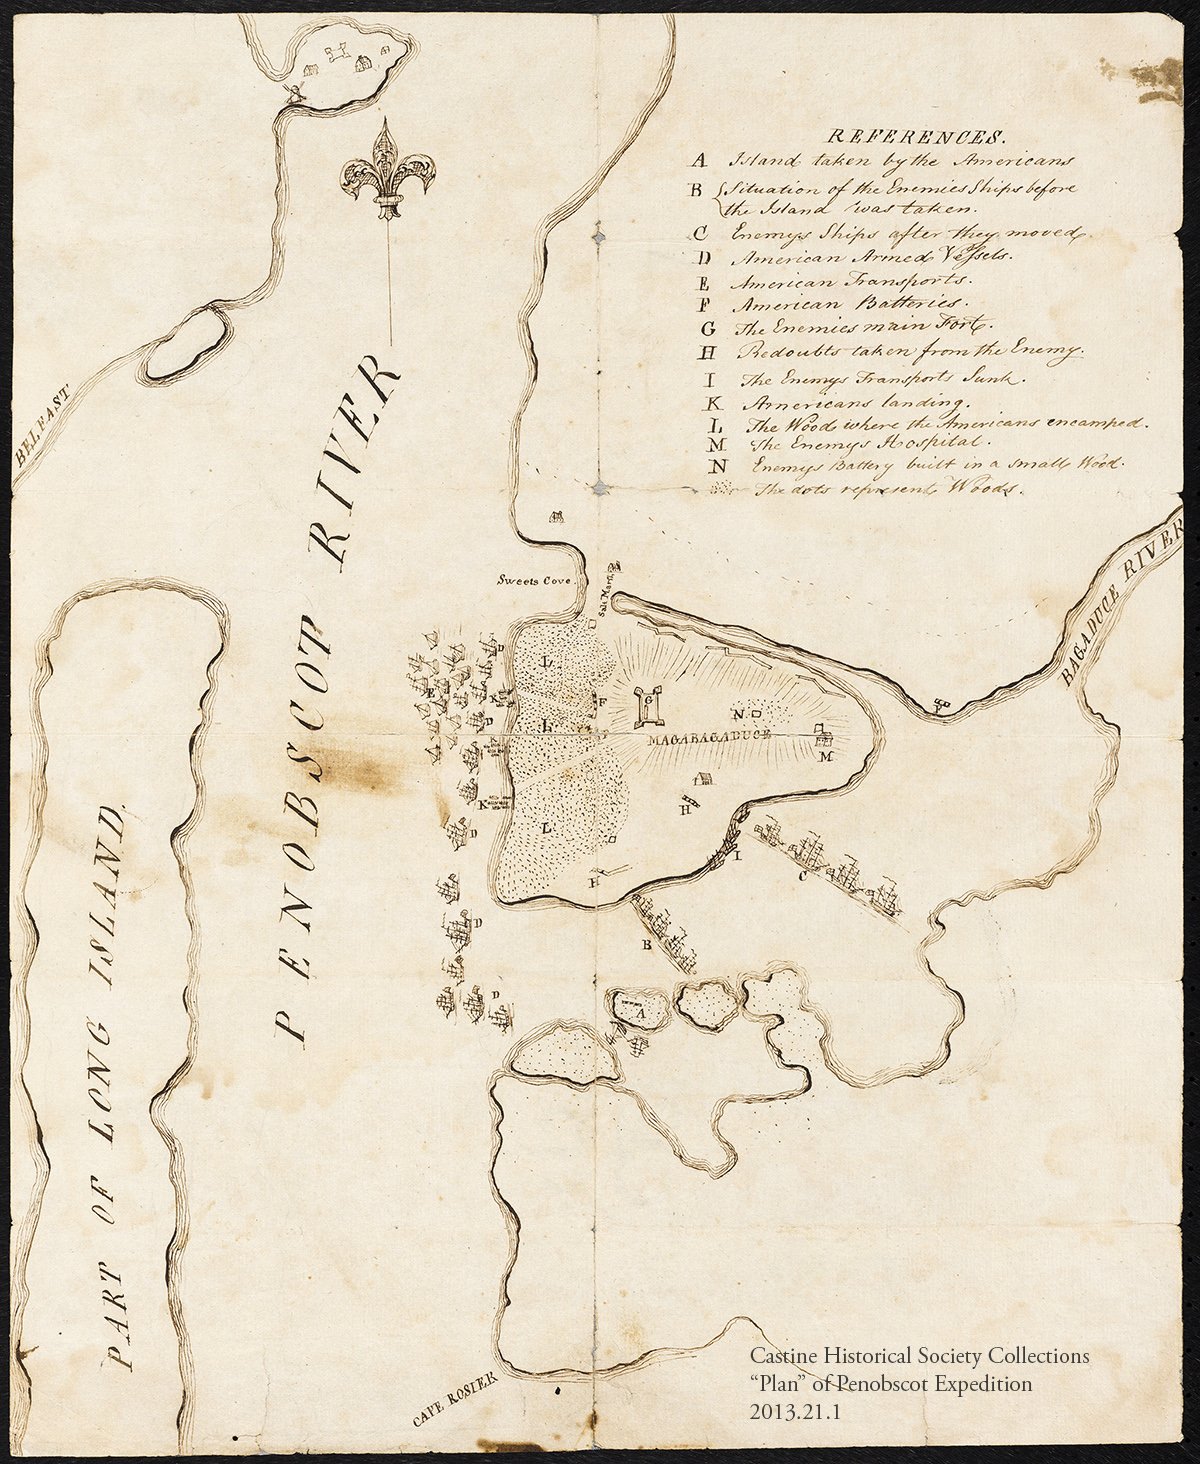 REFERENCES.
A Island taken by the Americans
B Situation of the Enemies Ships before
the Island was taken.
C Enemys Ships after they moved.
D American Armed Vessels.
E American Transports.
F American Batteries.
G The Enemies main Fort.
H Redoubts taken from the Enemy.
I The Enemys Transports Sunk.
K Americans landing.
L The Wood where the Americans encamped.
M The Enemys Hospital.
N Enemys Battery built in a small Wood.
The dots represent Woods.
BELFAST
PENOBSCOT RIVER
BAGADUCE RIVER
Sweets Cove
Salt Marsh
D
L
E
K
F
G
D
L
N
MAGABAGADUCE
M
K
H
L
D
I
H
C
D
B
D
A
PART OF LONG ISLAND.
CAPE ROSIER
Castine Historical Society Collections
“Plan” of Penobscot Expedition
2013.21.1